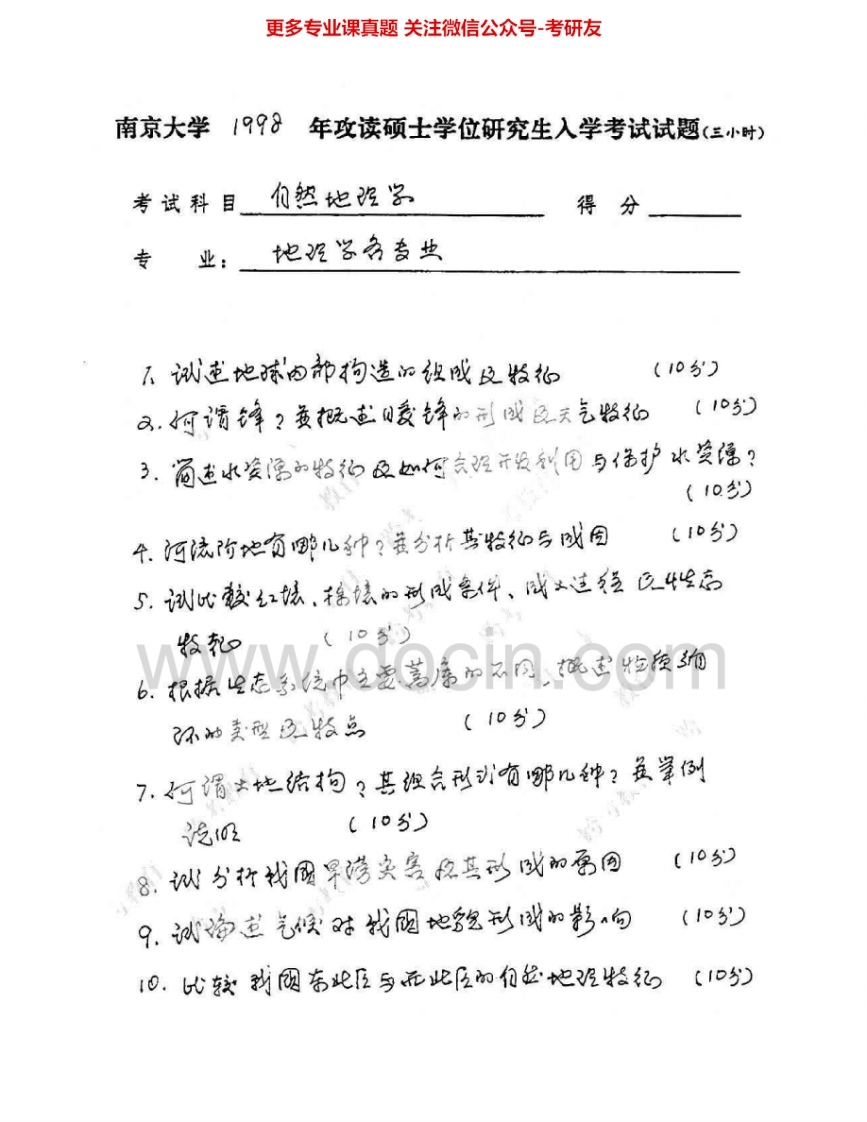 更多专业课真题 关注微信公众号-考研友
南京大学 1998 年攻读硕士学位研究生入学考试试题(三小时)
考试科目 自然地理学 得分
专 业: 地理学各专业
1. 试述地球内部构造的组成及特征 (10分)
2. 何谓锋?并概述暖锋的形成及天气特征 (10分)
3. 简述水资源的特征及如何合理开发利用与保护水资源?
(10分)
4. 河流阶地有哪几种?并分析其特征与成因 (10分)
5. 试比较红壤、棕壤的形成条件、成土过程及生态
特征 (10分)
6. 根据生态系统中主要营养库的不同、概述物质循
环的类型及特点 (10分)
7. 何谓土地结构?其组合形式有哪几种?并举例
说明 (10分)
8. 试分析我国旱涝灾害及其形成的原因 (10分)
9. 试论述气候对我国地貌形成的影响 (10分)
10. 比较我国东北区与西北区的自然地理特征 (10分)
www.docin.com